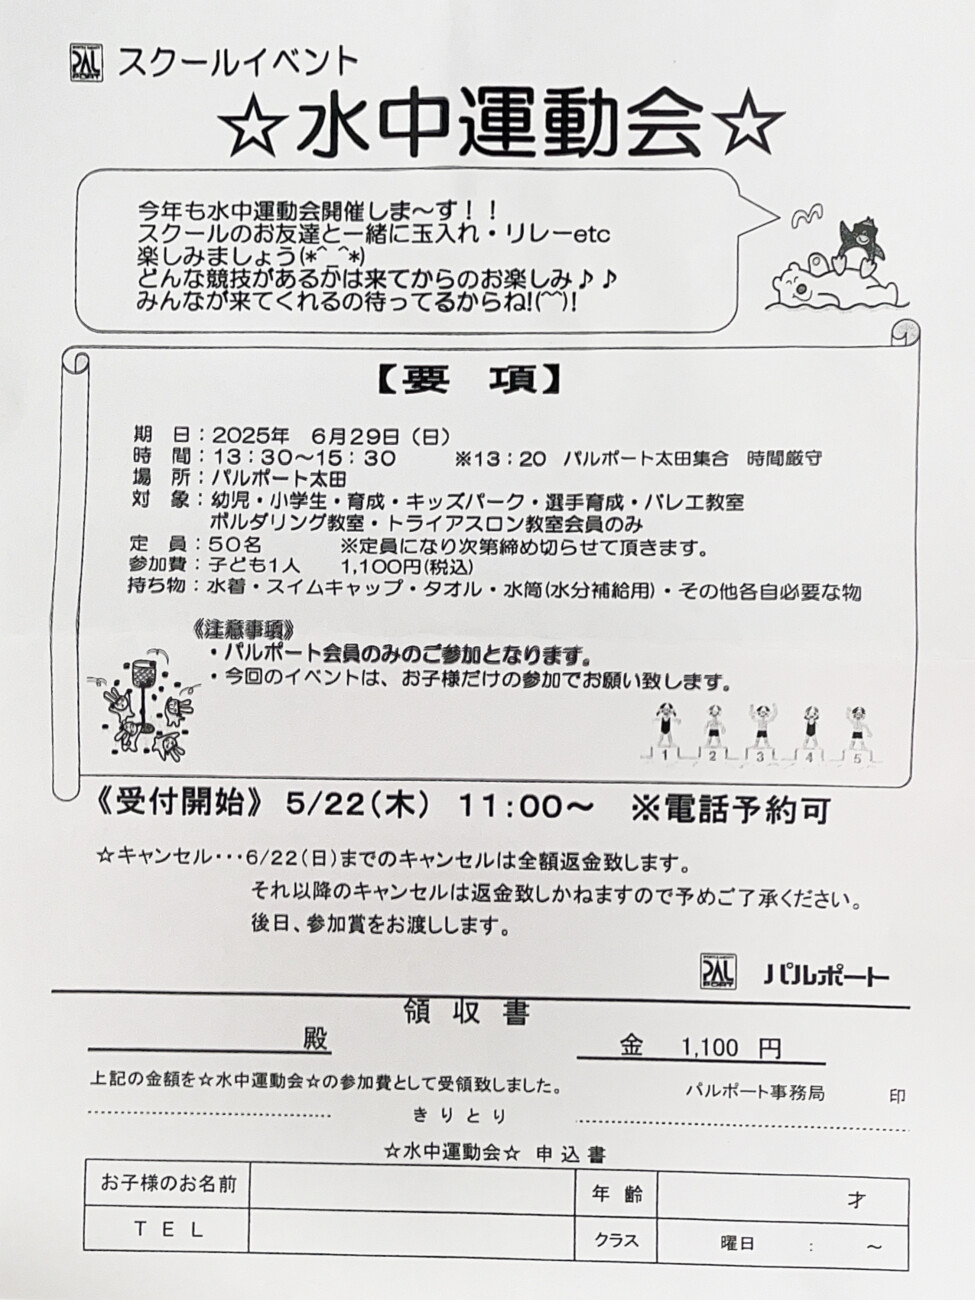 PAL PORT スクールイベント
☆水中運動会☆
今年も水中運動会開催しま～す！！
スクールのお友達と一緒に玉入れ・リレーetc
楽しみましょう(*^_^*)
どんな競技があるかは来てからのお楽しみ♪♪
みんなが来てくれるの待ってるからね!(^^)!
【要　項】
期　日：2025年　6月29日（日）
時　間：13：30～15：30　※13：20　パルポート太田集合　時間厳守
場　所：パルポート太田
対　象：幼児・小学生・育成・キッズパーク・選手育成・バレエ教室
ボルダリング教室・トライアスロン教室会員のみ
定　員：50名　※定員になり次第締め切らせて頂きます。
参加費：子ども1人　1,100円(税込)
持ち物：水着・スイムキャップ・タオル・水筒(水分補給用)・その他各自必要な物
《注意事項》
・パルポート会員のみのご参加となります。
・今回のイベントは、お子様だけの参加でお願い致します。
1 2 3 4 5
《受付開始》 5/22(木)　11:00～　※電話予約可
☆キャンセル･･･6/22(日)までのキャンセルは全額返金致します。
それ以降のキャンセルは返金致しかねますので予めご了承ください。
後日、参加賞をお渡しします。
PAL PORT パルポート
領 収 書
殿　金　1,100 円
上記の金額を☆水中運動会☆の参加費として受領致しました。
パルポート事務局　印
き り と り
☆水中運動会☆ 申 込 書
お子様のお名前　年 齢　才
T E L　クラス　曜日　:　～